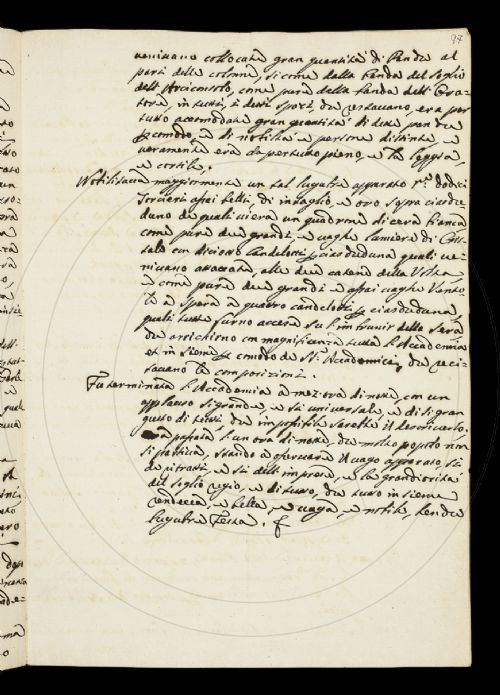 97
venivano collocate gran quantità di Panche al
pari delle colonne, si come dalla banda del soglio
dell' Arciconsolo, come pure dalla banda dell' Ora=
tore, in tutti i detti spazi che restavano, era per
tutto accomodate gran quantità di dette panche
p comodo, e di nobiltà e persone distinte, e
veramente era da per tutto pieno, e la loggia,
e cortile,
Nobilitava maggiormente un tal lugubre apparato dodici
Torcieri assai belli, di intaglio, e oro sopra ciasche=
duno de quali vi era un quaderno di cera bianca
come pure due grandi, e vaghe lumiere di Cris=
tallo con diciotto Candelotti p ciascheduna quali ve=
nivano attaccate, alle due catene della Volta
e come pure due grandi e assai vaghe Vento=
le a spera a quattro candelotti p ciascheduna,
quali tutte furno accese su l'imbrunir della sera
che arrichirno con magnificenza tutta l'Accademia
et insieme p comodo de SSi: Accademici, che reci=
tavano le composizioni.
Fu terminata l'Accademia a mez'ora di notte, con un
applauso si grande, e si universale, e di si gran
gusto di tutti che impossibile sarebbe il descriverlo.
Era passata l'un ora di notte, che molto popolo non
si partiva, stando a osservare il vago apparato, si
de ritratti, e si dell' imprese, e la grandiosità
del soglio regio, e di tutto, che tutto insieme
rendeva, e bella, e vaga, e nobile, benche
lugubre Festa.